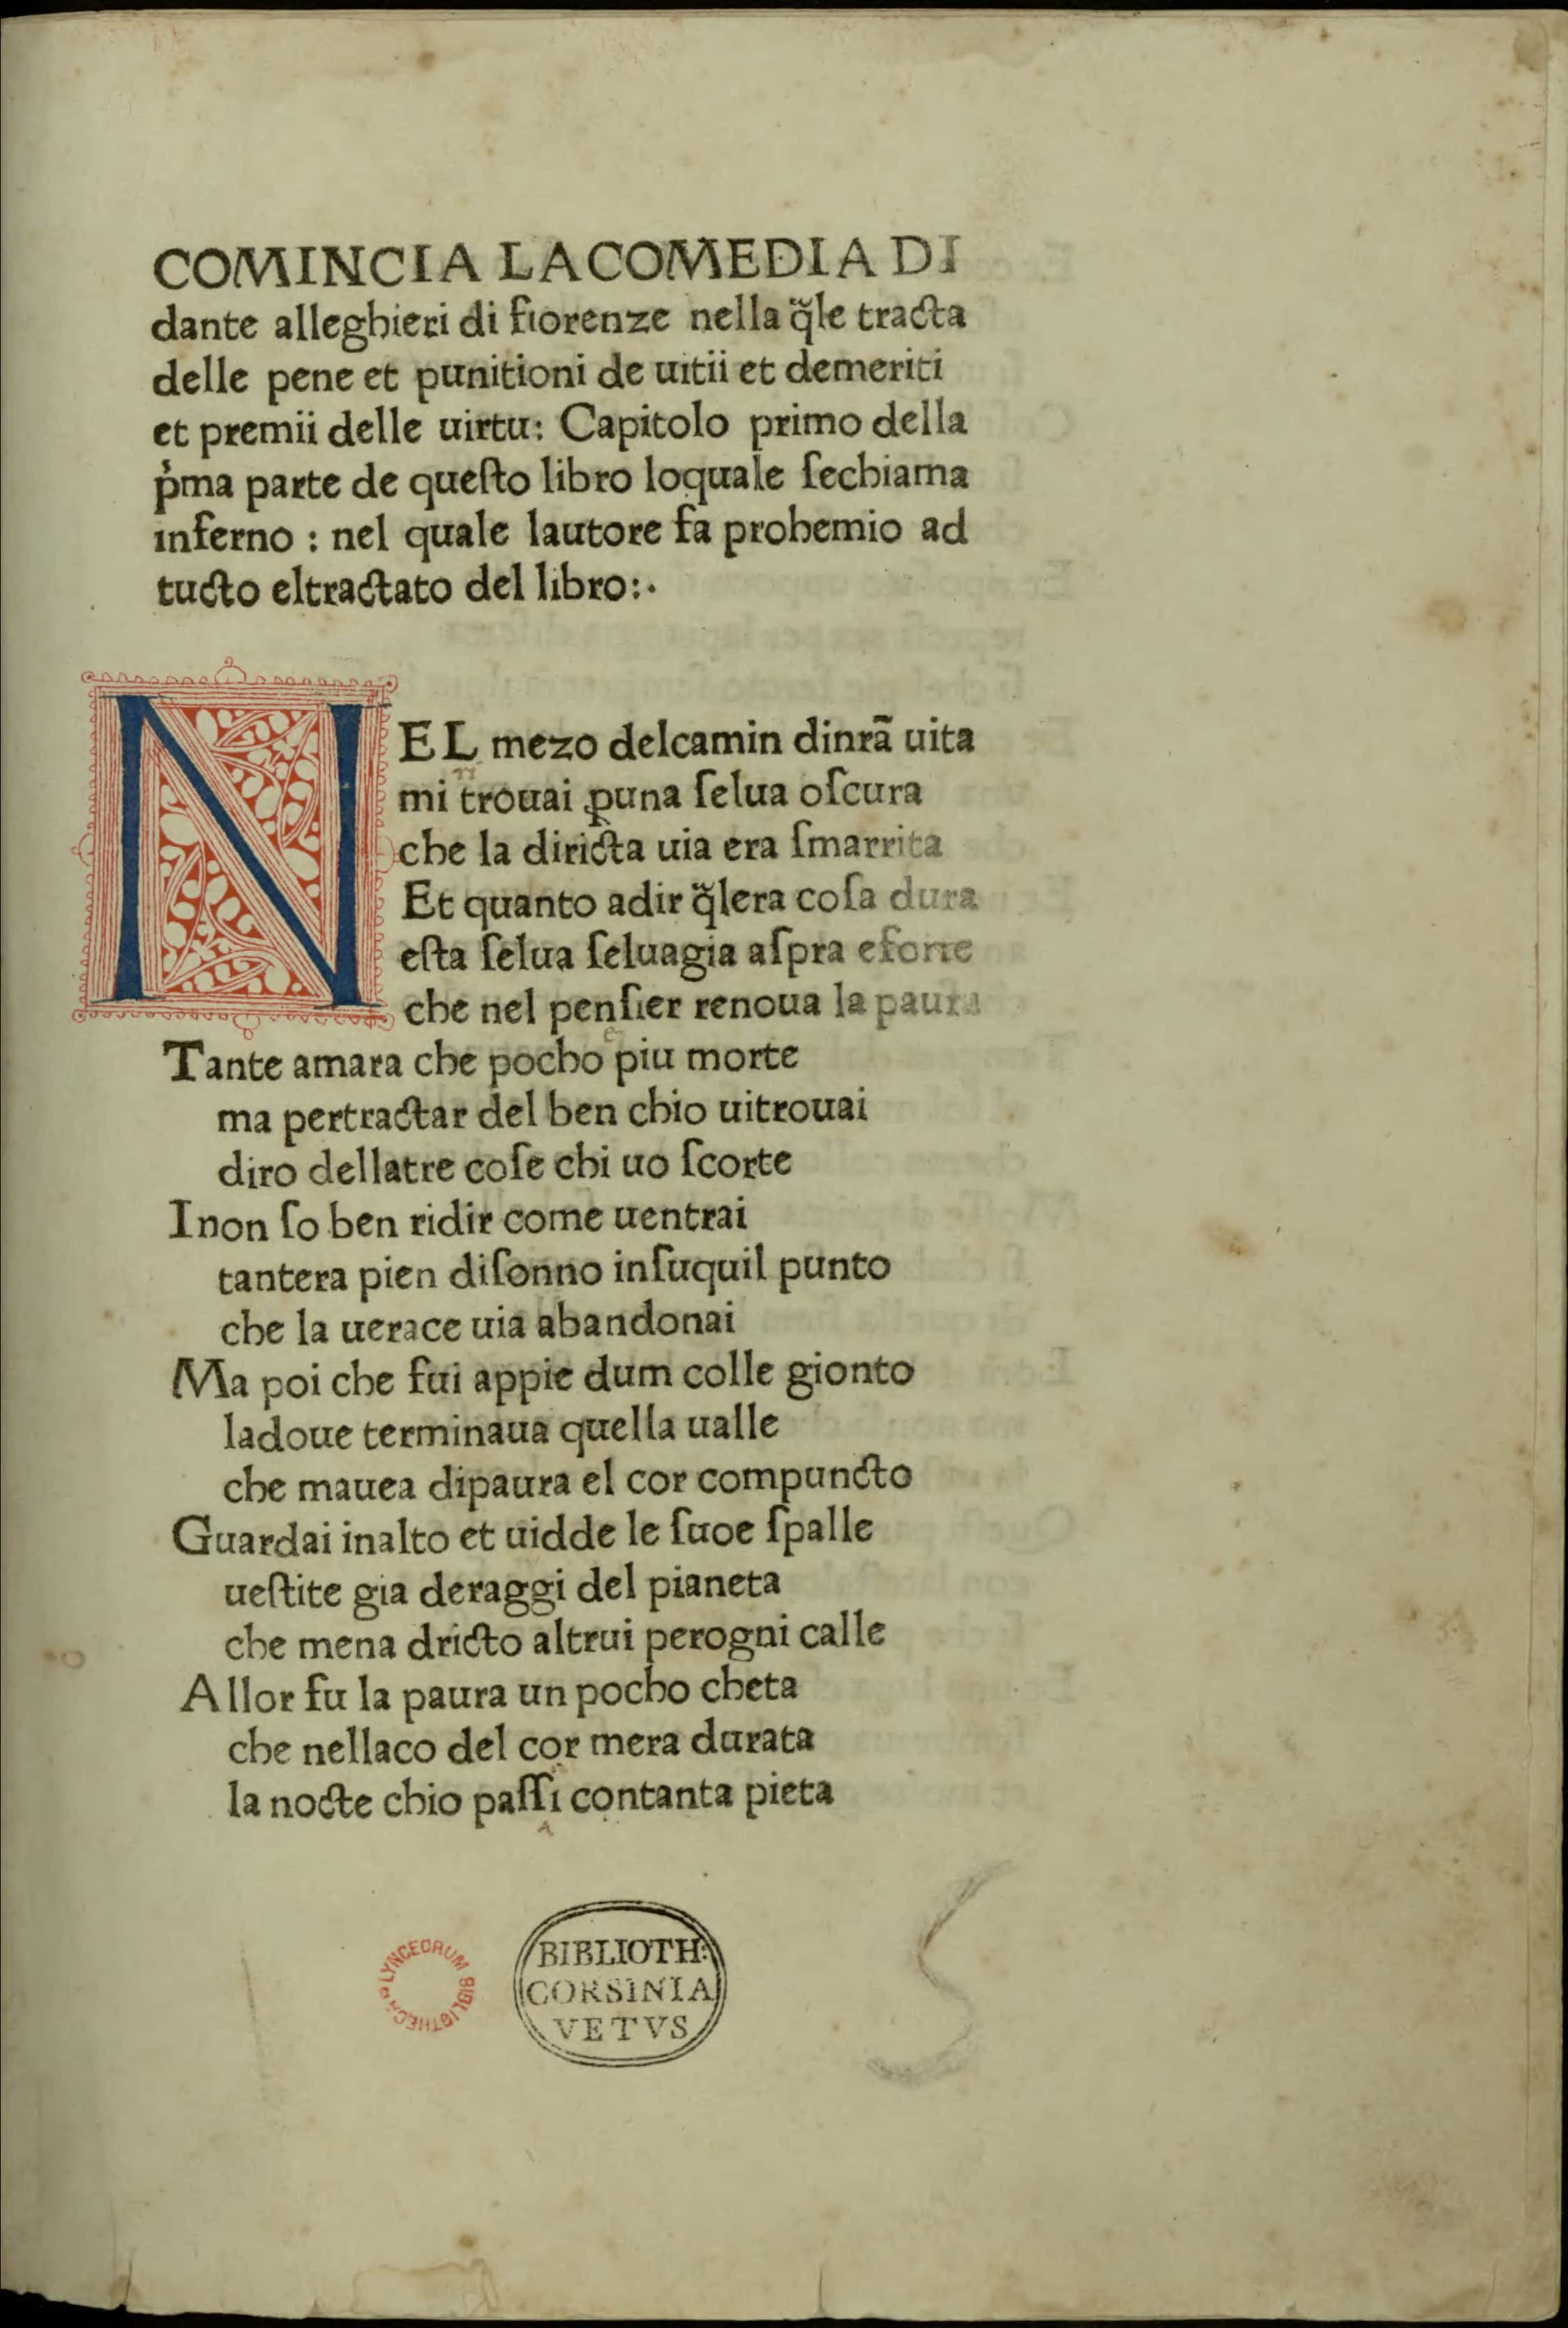 COMINCIA LACOMEDIA DI
dante alleghieri di fiorenze nella q̃le tracta
delle pene et punitioni de uitii et demeriti
et premii delle uirtu: Capitolo primo della
p̍ma parte de queſto libro loquale ſechiama
inferno : nel quale lautore fa prohemio ad
tucto eltractato del libro:·
NEL mezo delcamin dinrã uita
mi trouai ꝑuna ſelua oſcura
che la diricta uia era ſmarrita
Et quanto adir q̃lera coſa dura
eſta ſelua ſeluagia aſpra eforte
che nel penſier renoua la paura
Tante amara che pocho piu morte
ma pertractar del ben chio uitrouai
diro dellatre coſe chi uo ſcorte
Inon ſo ben ridir come uentrai
tantera pien diſonno inſuquil punto
che la uerace uia abandonai
Ma poi che fui appie dum colle gionto
ladoue terminaua quella ualle
che mauea dipaura el cor compuncto
Guardai inalto et uidde le ſuoe ſpalle
ueſtite gia deraggi del pianeta
che mena dricto altrui perogni calle
Allor fu la paura un pocho cheta
che nellaco del cor mera durata
la nocte chio paſſi contanta pieta
LYNCEORUM BIBLIOTHECA
BIBLIOTH:
CORSINIA
VETVS